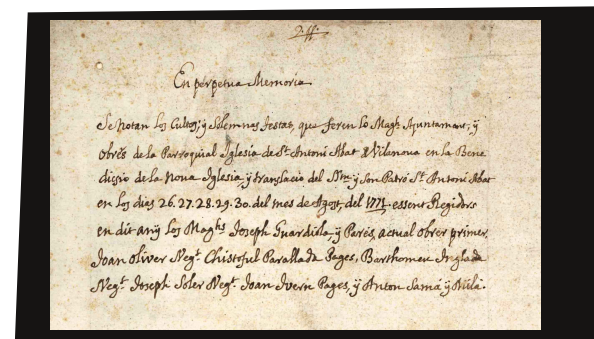 En perpetua Memoria
Se notan los Cultos, y Solemnas festas, que feren lo Magh Ajuntament, y
obrers de la Parroquial Iglesia de St Antoni Abat de Vilanova en la Bene
dissio de la nova Iglesia, y translacio del SSm y son Patró St Antoni Abat
en los dies 26. 27. 28. 29. 30. del mes de Agost, del 1771. essent Regidors
en dit any los Maghs Joseph Guardiola, y Parés, actual obrer primer,
Joan Oliver Negt Christoful Parallada Pages, Barthomeu Inglada
Negt Joseph Soler Negt Joan Ivern Pages, ÿ Anton Samá ÿ Milá.